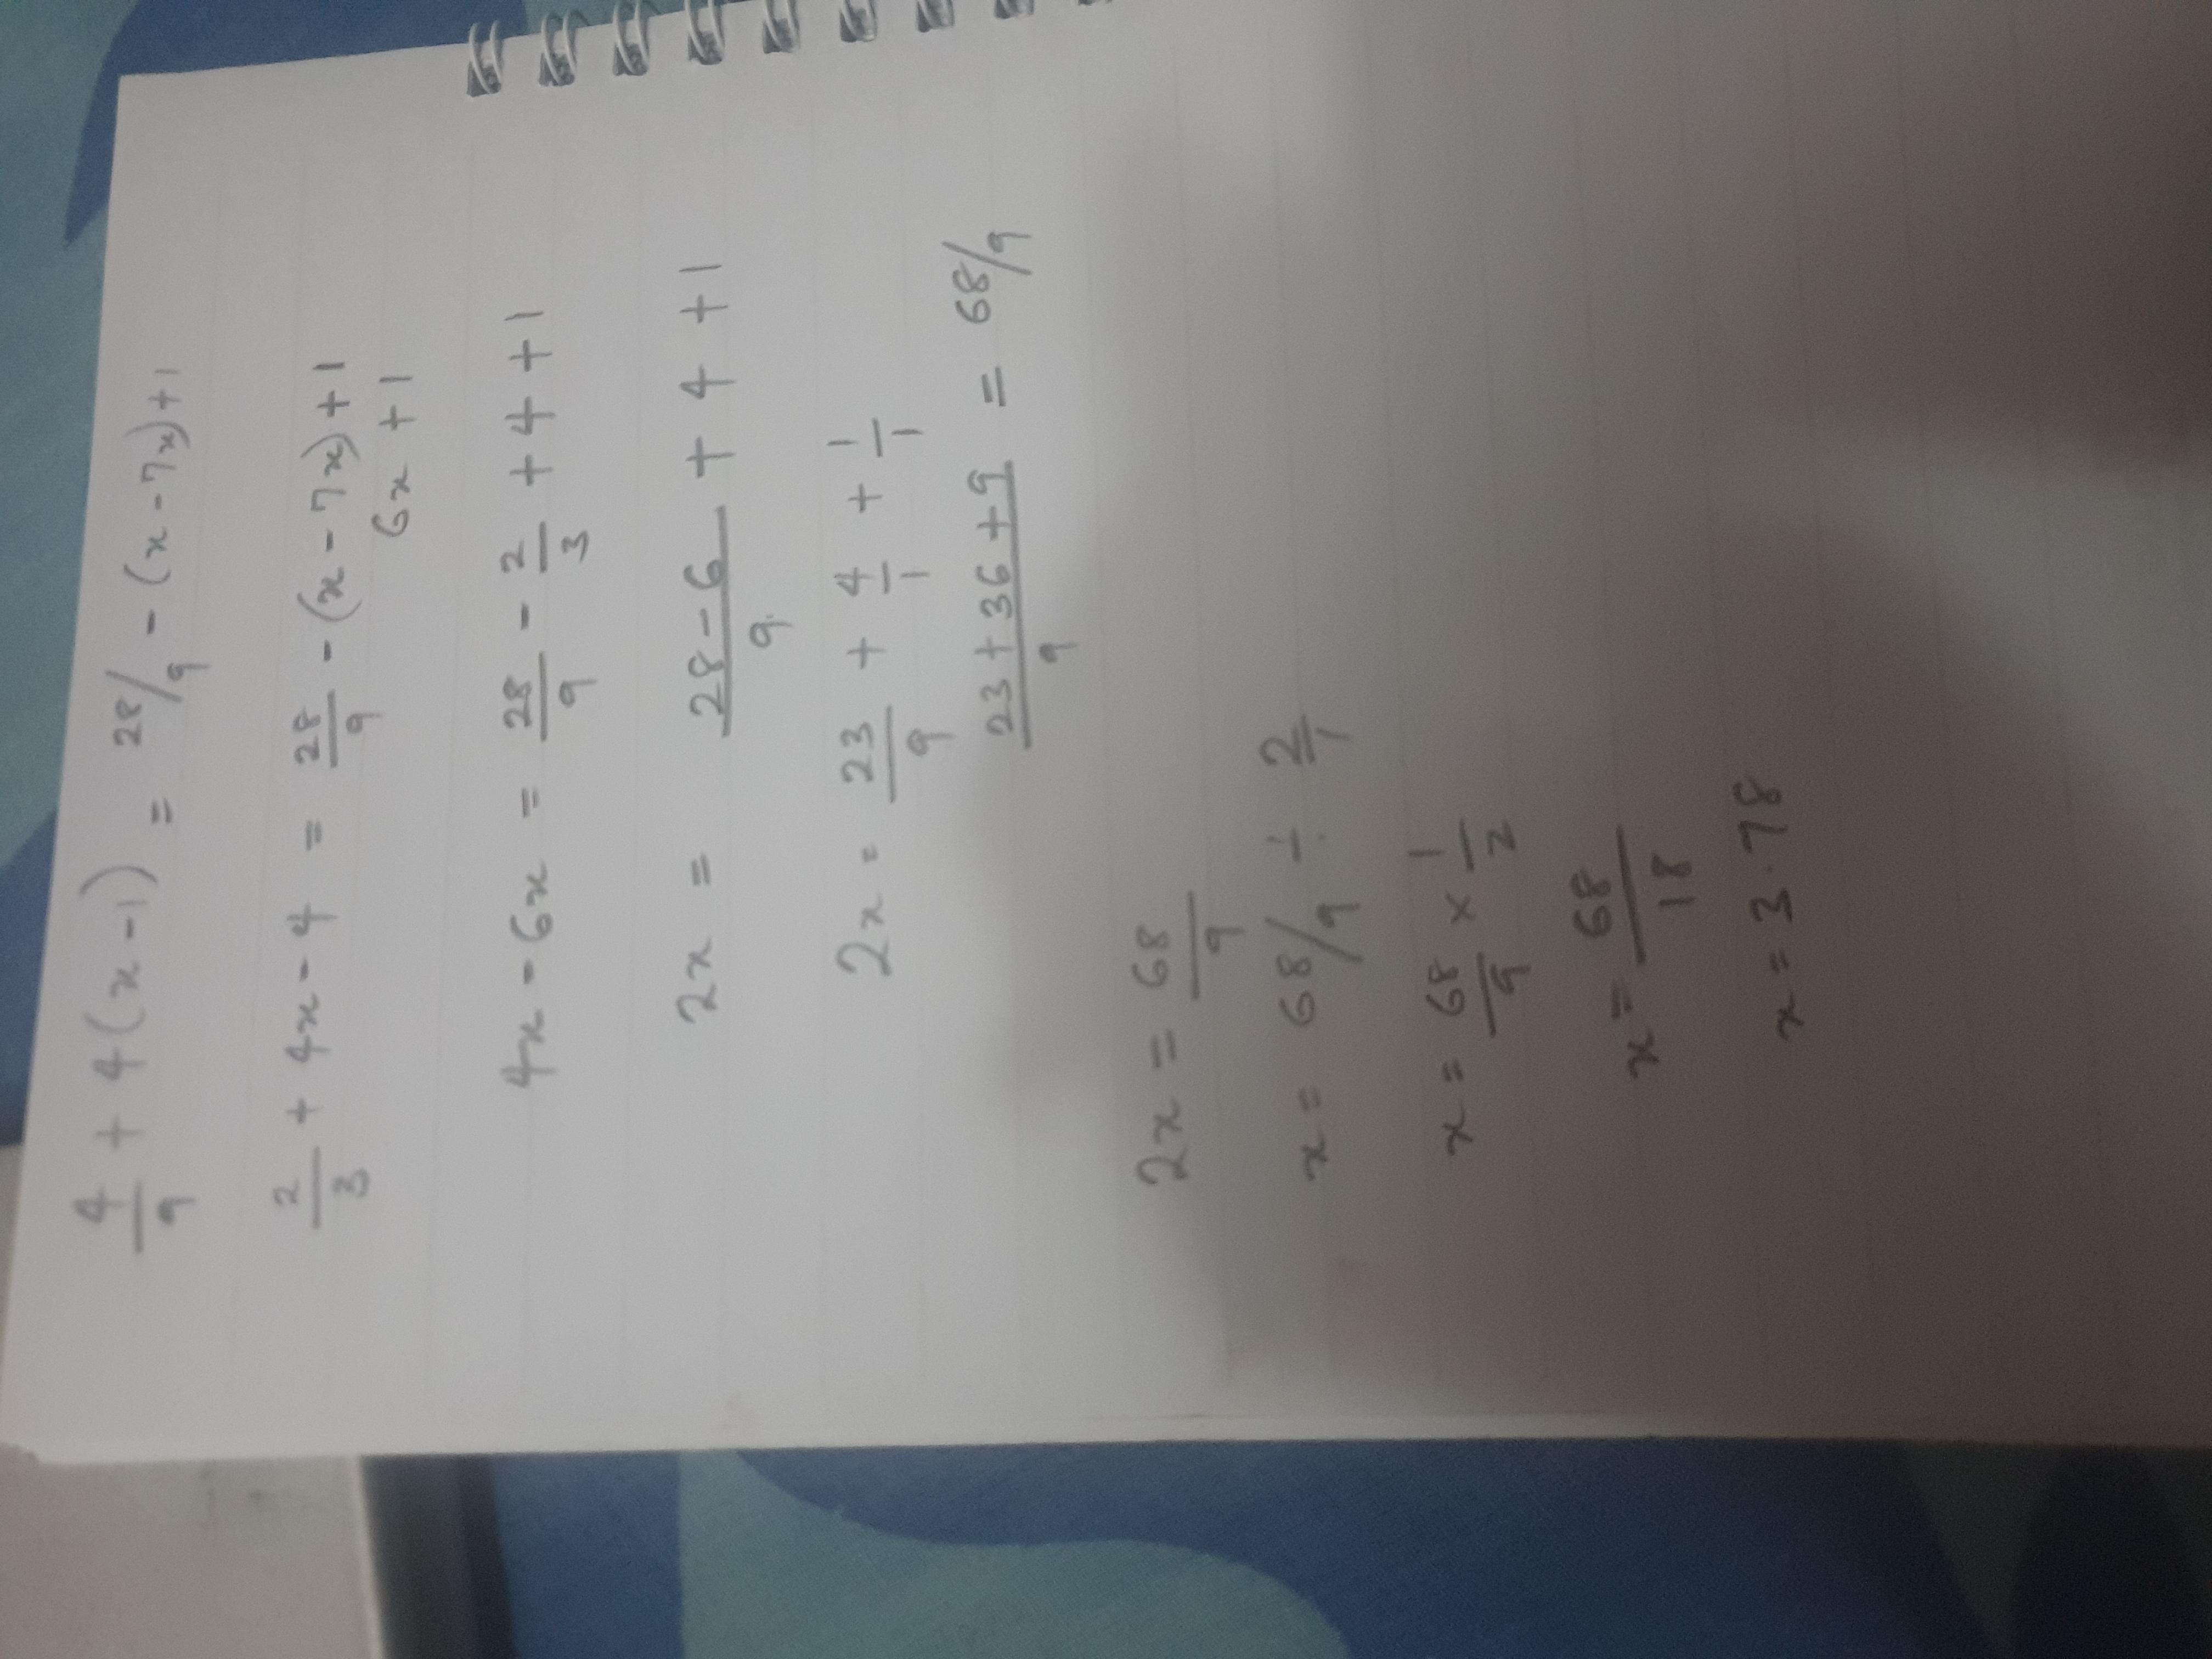 4/9 + 4(x-1) = 28/9 - (x-7x)+1
2/3 + 4x-4 = 28/9 - (x-7x)+1
6x +1
4x-6x = 28/9 - 2/3 +4+1
2x = 28-6/9 + 4 +1
2x = 23/9 + 4/1 + 1/1
23+36+9/9 = 68/9
2x = 68/9
x = 68/9 ÷ 2/1
x = 68/9 × 1/2
x = 68/18
x = 3.78